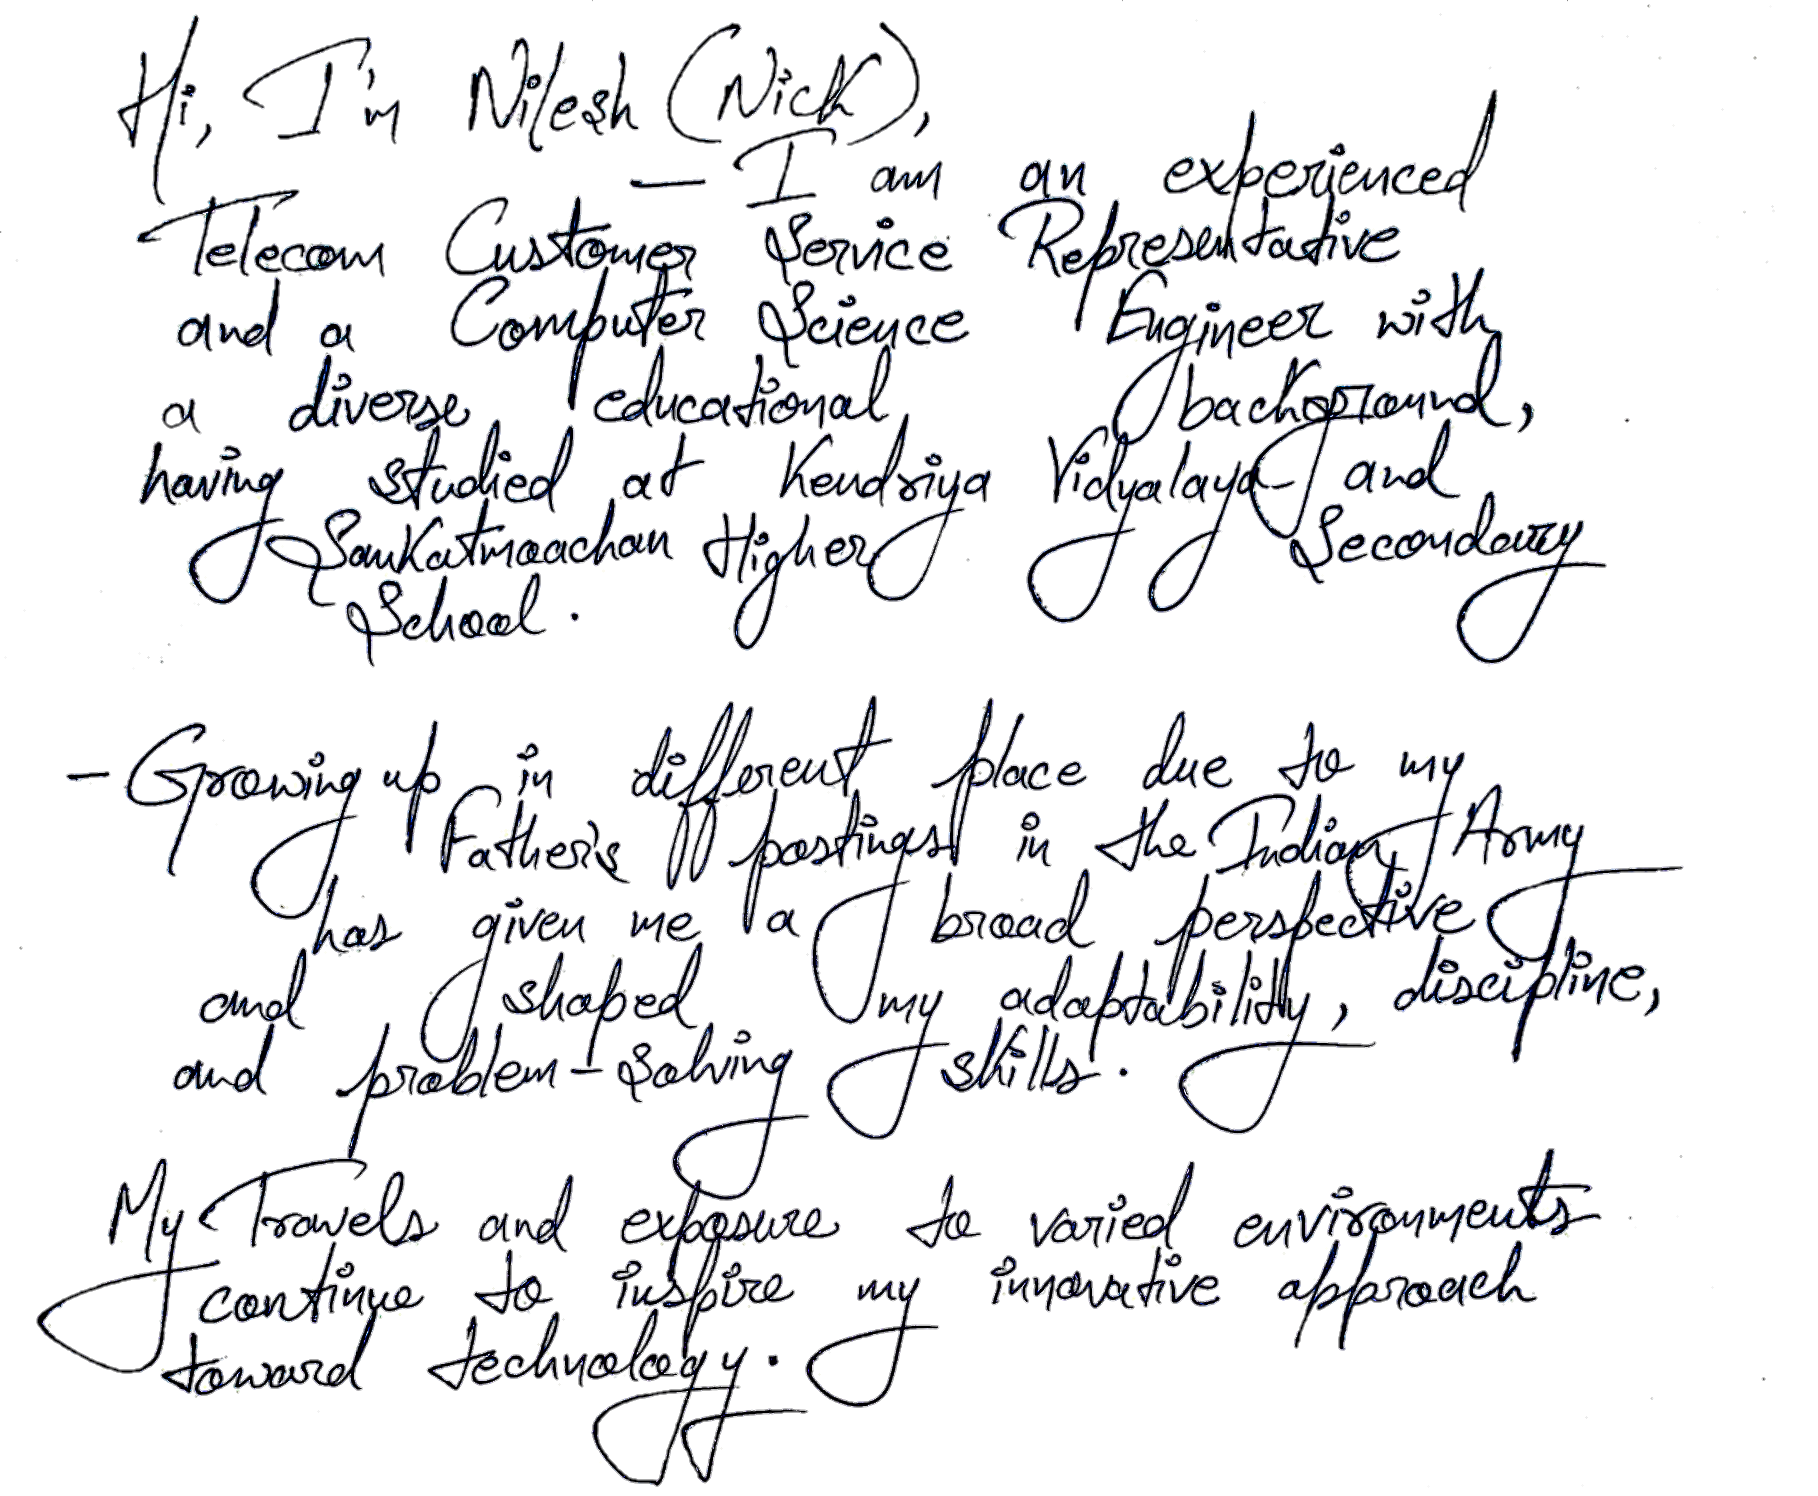 Hi, I'm Nilesh (Nick),
— I am an experienced
Telecom Customer Service Representative
and a Computer Science Engineer with
a diverse educational background,
having studied at Kendriya Vidyalaya and
Sankatmoachan Higher Secondary
School.
- Growing up in different place due to my
Father's postings in the Indian Army
has given me a broad perspective
and shaped my adaptability, discipline,
and problem-solving skills.
My Travels and exposure to varied environments
continue to inspire my innovative approach
toward technology.